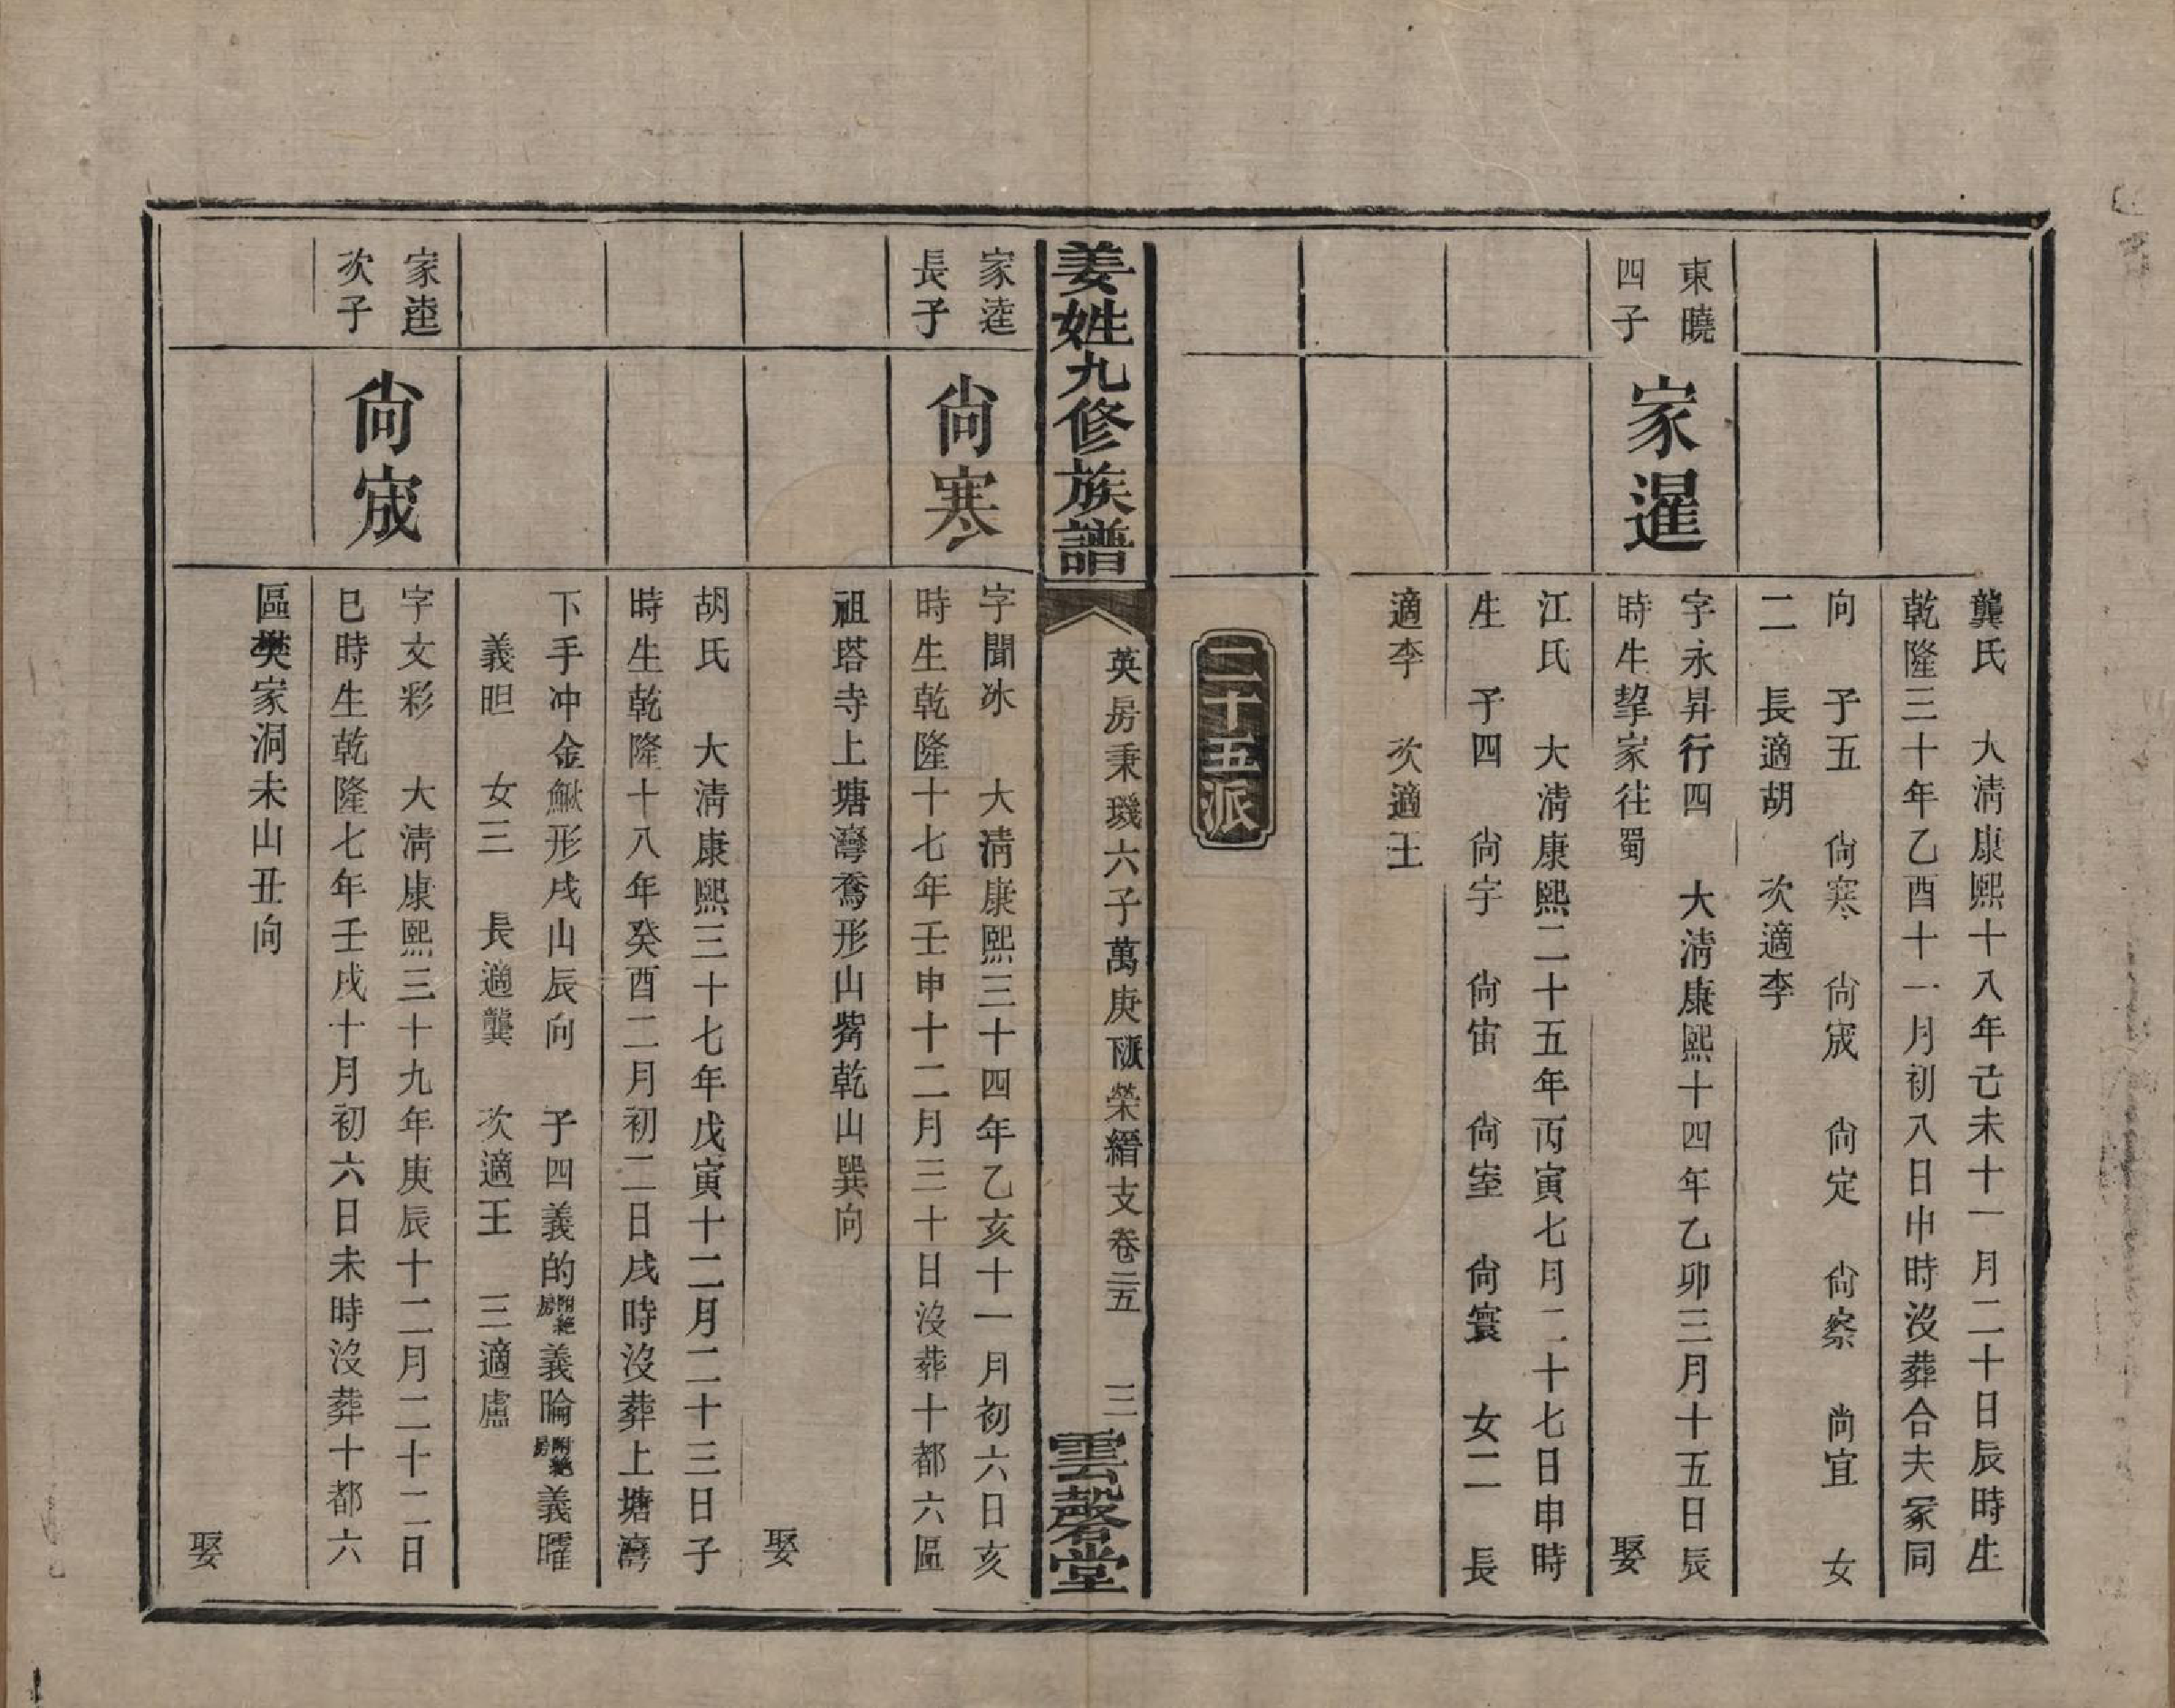 龔氏　大淸康熙十八年己未十一月二十日辰時生
乾隆三十年乙酉十一月初八日申時沒葬合夫冢同
向　子五　尙寒　尙宬　尙定　尙察　尙宜　女
二　長適胡　次適李
東曉
四子
家暹
字永昇行四　大淸康熙十四年乙卯三月十五日辰
時生挈家往蜀　娶
江氏　大淸康熙二十五年丙寅七月二十七日申時
生　子四　尙宇　尙宙　尙室　尙寰　女二　長
適李　次適王
二十五派
姜姓九修族譜
英房秉璣六子萬庚祳榮縉支卷二五　三
雲磬堂
家逵
長子
尙寒
字聞冰　大淸康熙三十四年乙亥十一月初六日亥
時生乾隆十七年壬申十二月三十日沒葬十都六區
祖塔寺上塘灣鴌形山觜乾山巽向
娶
胡氏　大淸康熙三十七年戊寅十二月二十三日子
時生乾隆十八年癸酉二月初二日戌時沒葬上塘灣
下手冲金鰍形戌山辰向　子四義的附絕房義睔附絕房義曜
義昍　女三　長適龔　次適王　三適盧
家逵
次子
尙宬
字文彩　大淸康熙三十九年庚辰十二月二十二日
巳時生乾隆七年壬戌十月初六日未時沒葬十都六
區樊家洞未山丑向
娶